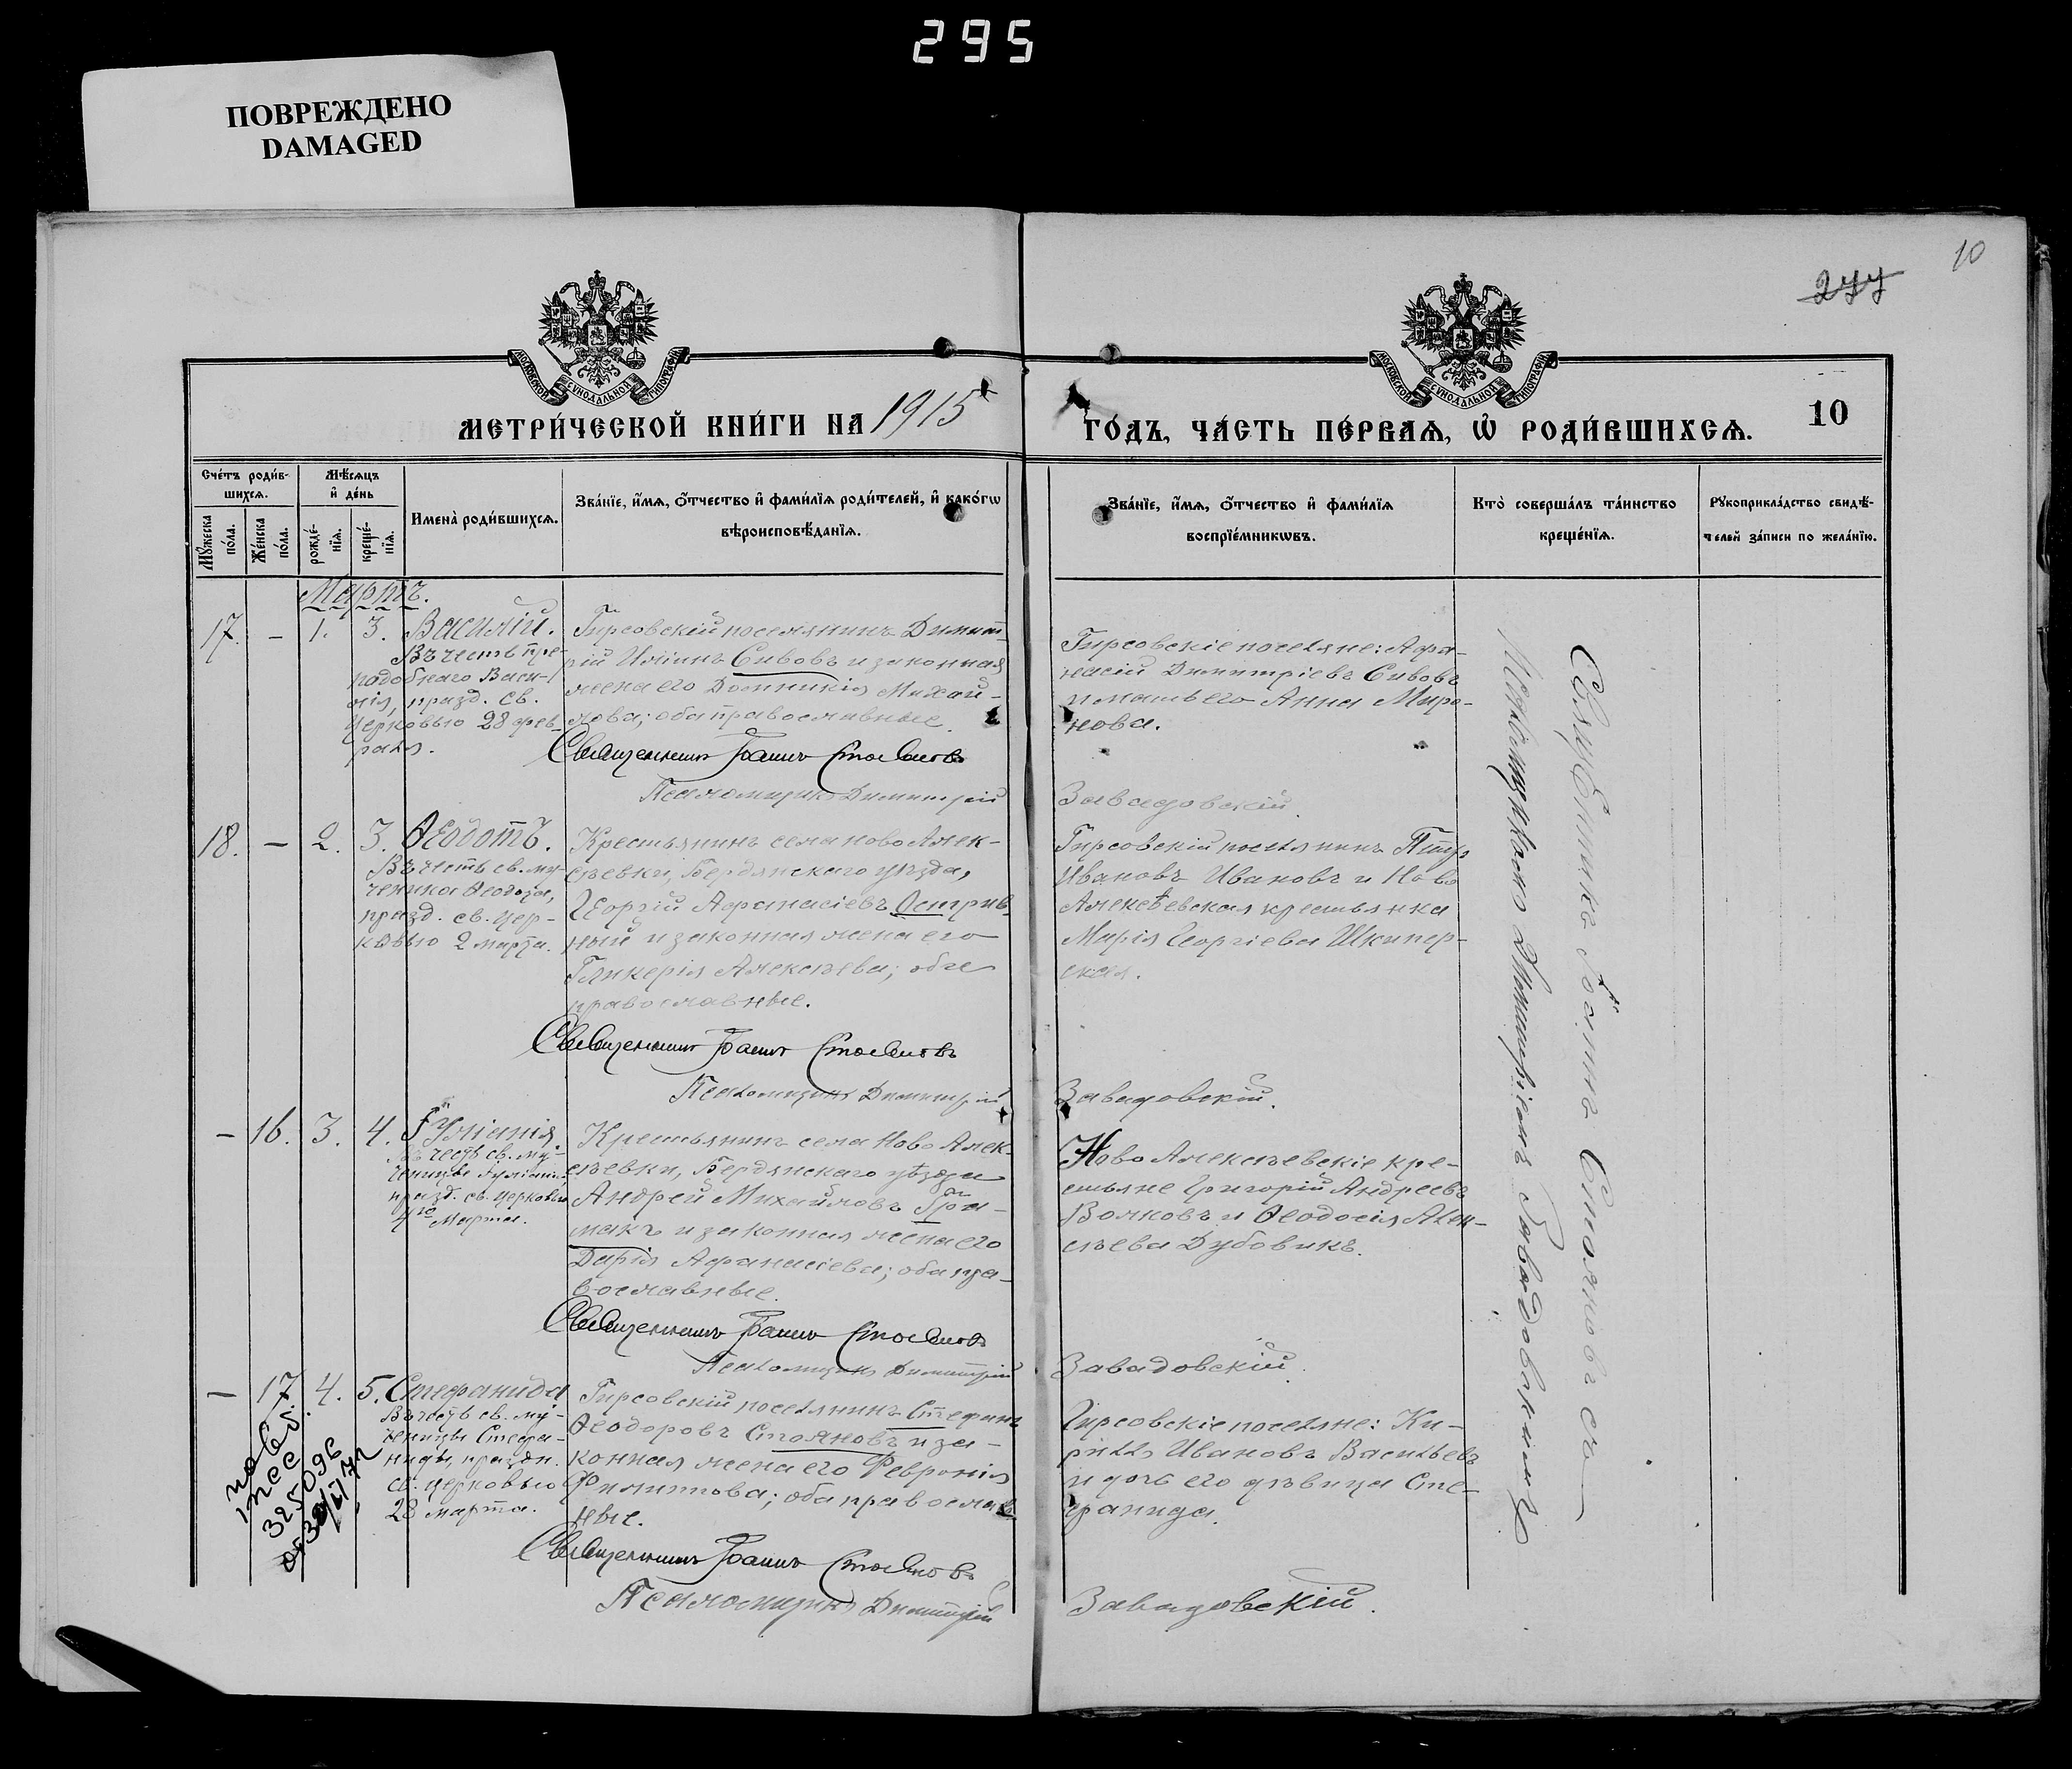 295
ПОВРЕЖДЕНО
DAMAGED
10
277
МОСКОВСКОЙ СѴНОДАЛЬНОЙ ТИПОГРАФІИ
МОСКОВСКОЙ СѴНОДАЛЬНОЙ ТИПОГРАФІИ
МЕТРИ́ЧЕСКОЙ КНИ́ГИ НА 1915
ГО́ДЪ, ЧА́СТЬ ПЕ́РВАѦ, Ѡ РОДИ́ВШИХСѦ.
10
Сче́тъ роди́в-
шихсѧ.
Мѣ́сѧцъ
и҆ де́нь
Мꙋ́жеска
по́ла.
Же́нска
по́ла.
рожде́-
нїѧ.
креще́-
нїѧ.
Имена̀ роди́вшихсѧ.
Зва́нїе, и҆́мѧ, ѻ҆́тчество и҆ фами́лїѧ роди́телей, и҆ како́гѡ
вѣроисповѣ́данїѧ.
Зва́нїе, и҆́мѧ, ѻ҆́тчество и҆ фами́лїѧ
воспрїе́мникѡвъ.
Кто̀ соверша́лъ та́инство
креще́нїѧ.
Рꙋкоприкла́дство свидѣ́-
телей за́писи по жела́нїю.
Мартъ.
17. – 1. 3. Василій.
Въ честь пре-
подобнаго Васи-
лія, празд. св.
церковью 28 фев-
раля.
Гирсовскій поселянинъ Димит-
рій Иліинъ Сивовъ и законная
жена его Домникія Михай-
лова; оба православные.
Священникъ Іоаннъ Стояновъ
Псаломщикъ Димитрій
Гирсовскіе поселяне: Афа-
насій Димитріевъ Сивовъ
и мать его Анна Миро-
нова.
Завадовскій.
18. – 2. 3. Ѳеодотъ.
Въ честь св. му-
ченика Ѳеодота,
празд. св. цер-
ковью 2 марта.
Крестьянинъ села Ново Алек-
сѣевки, Бердянскаго уѣзда,
Георгій Афанасіевъ Остри
ный и законная жена его
Гликерія Алексѣева; оба
православные.
Священникъ Іоаннъ Стояновъ
Псаломщикъ Димитрій
Гирсовскій поселянинъ Петръ
Ивановъ Ивановъ и Ново
Алексѣевская крестьянка
Марія Георгіева Шкипер-
ская.
Завадовскій.
– 16. 3. 4. Іуліанія.
Въ честь св. му-
ченицы Іуліаніи
празд. св. церковью
4го Марта.
Крестьянинъ села Ново Алек-
сѣевки, Бердянскаго уѣзда
Андрей Михайловъ Гри-
макъ и законная жена его
Дарія Афанасіева; оба пра-
вославные.
Священникъ Іоаннъ Стояновъ
Псаломщикъ Димитрій
Ново Алексѣевскіе кре-
стьяне Григорій Андреевъ
Волковъ и Ѳеодосія Алек-
сѣева Дубовикъ.
Завадовскій.
– 17. 4. 5. Стефанида
Въ честь св. му-
ченицы Стефа-
ниды, праздн.
св. церковью
28 марта.
Гирсовскій поселянинъ Стефанъ
Ѳеодоровъ Стояновъ и за-
конная жена его Февронія
Филиппова; оба православ-
ные.
Священникъ Іоаннъ Стояновъ
Псаломщикъ Димитрій
Гирсовскіе поселяне: Ки-
риллъ Ивановъ Васильевъ
и дочь его дѣвица Сте-
фанида.
Завадовскій.
325096
Священникъ Іоаннъ Стояновъ съ
Псаломщикомъ Димитріемъ Завадовскимъ